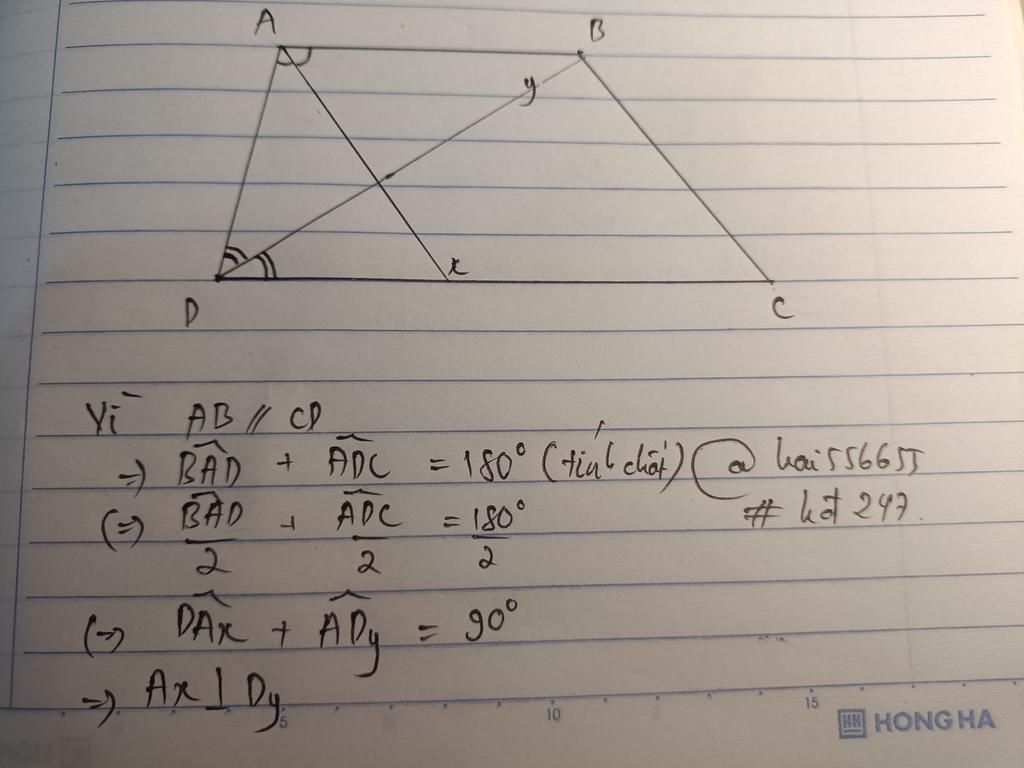 A B
y
x
D C
Vì AB // CD
=> BAD + ADC = 180° (tính chất) @hai556655
(=> BAD/2 + ADC/2 = 180°/2 # hđt 247.
(=> DAx + ADy = 90°
=> Ax ⊥ Dy
5 10 15
HONG HA